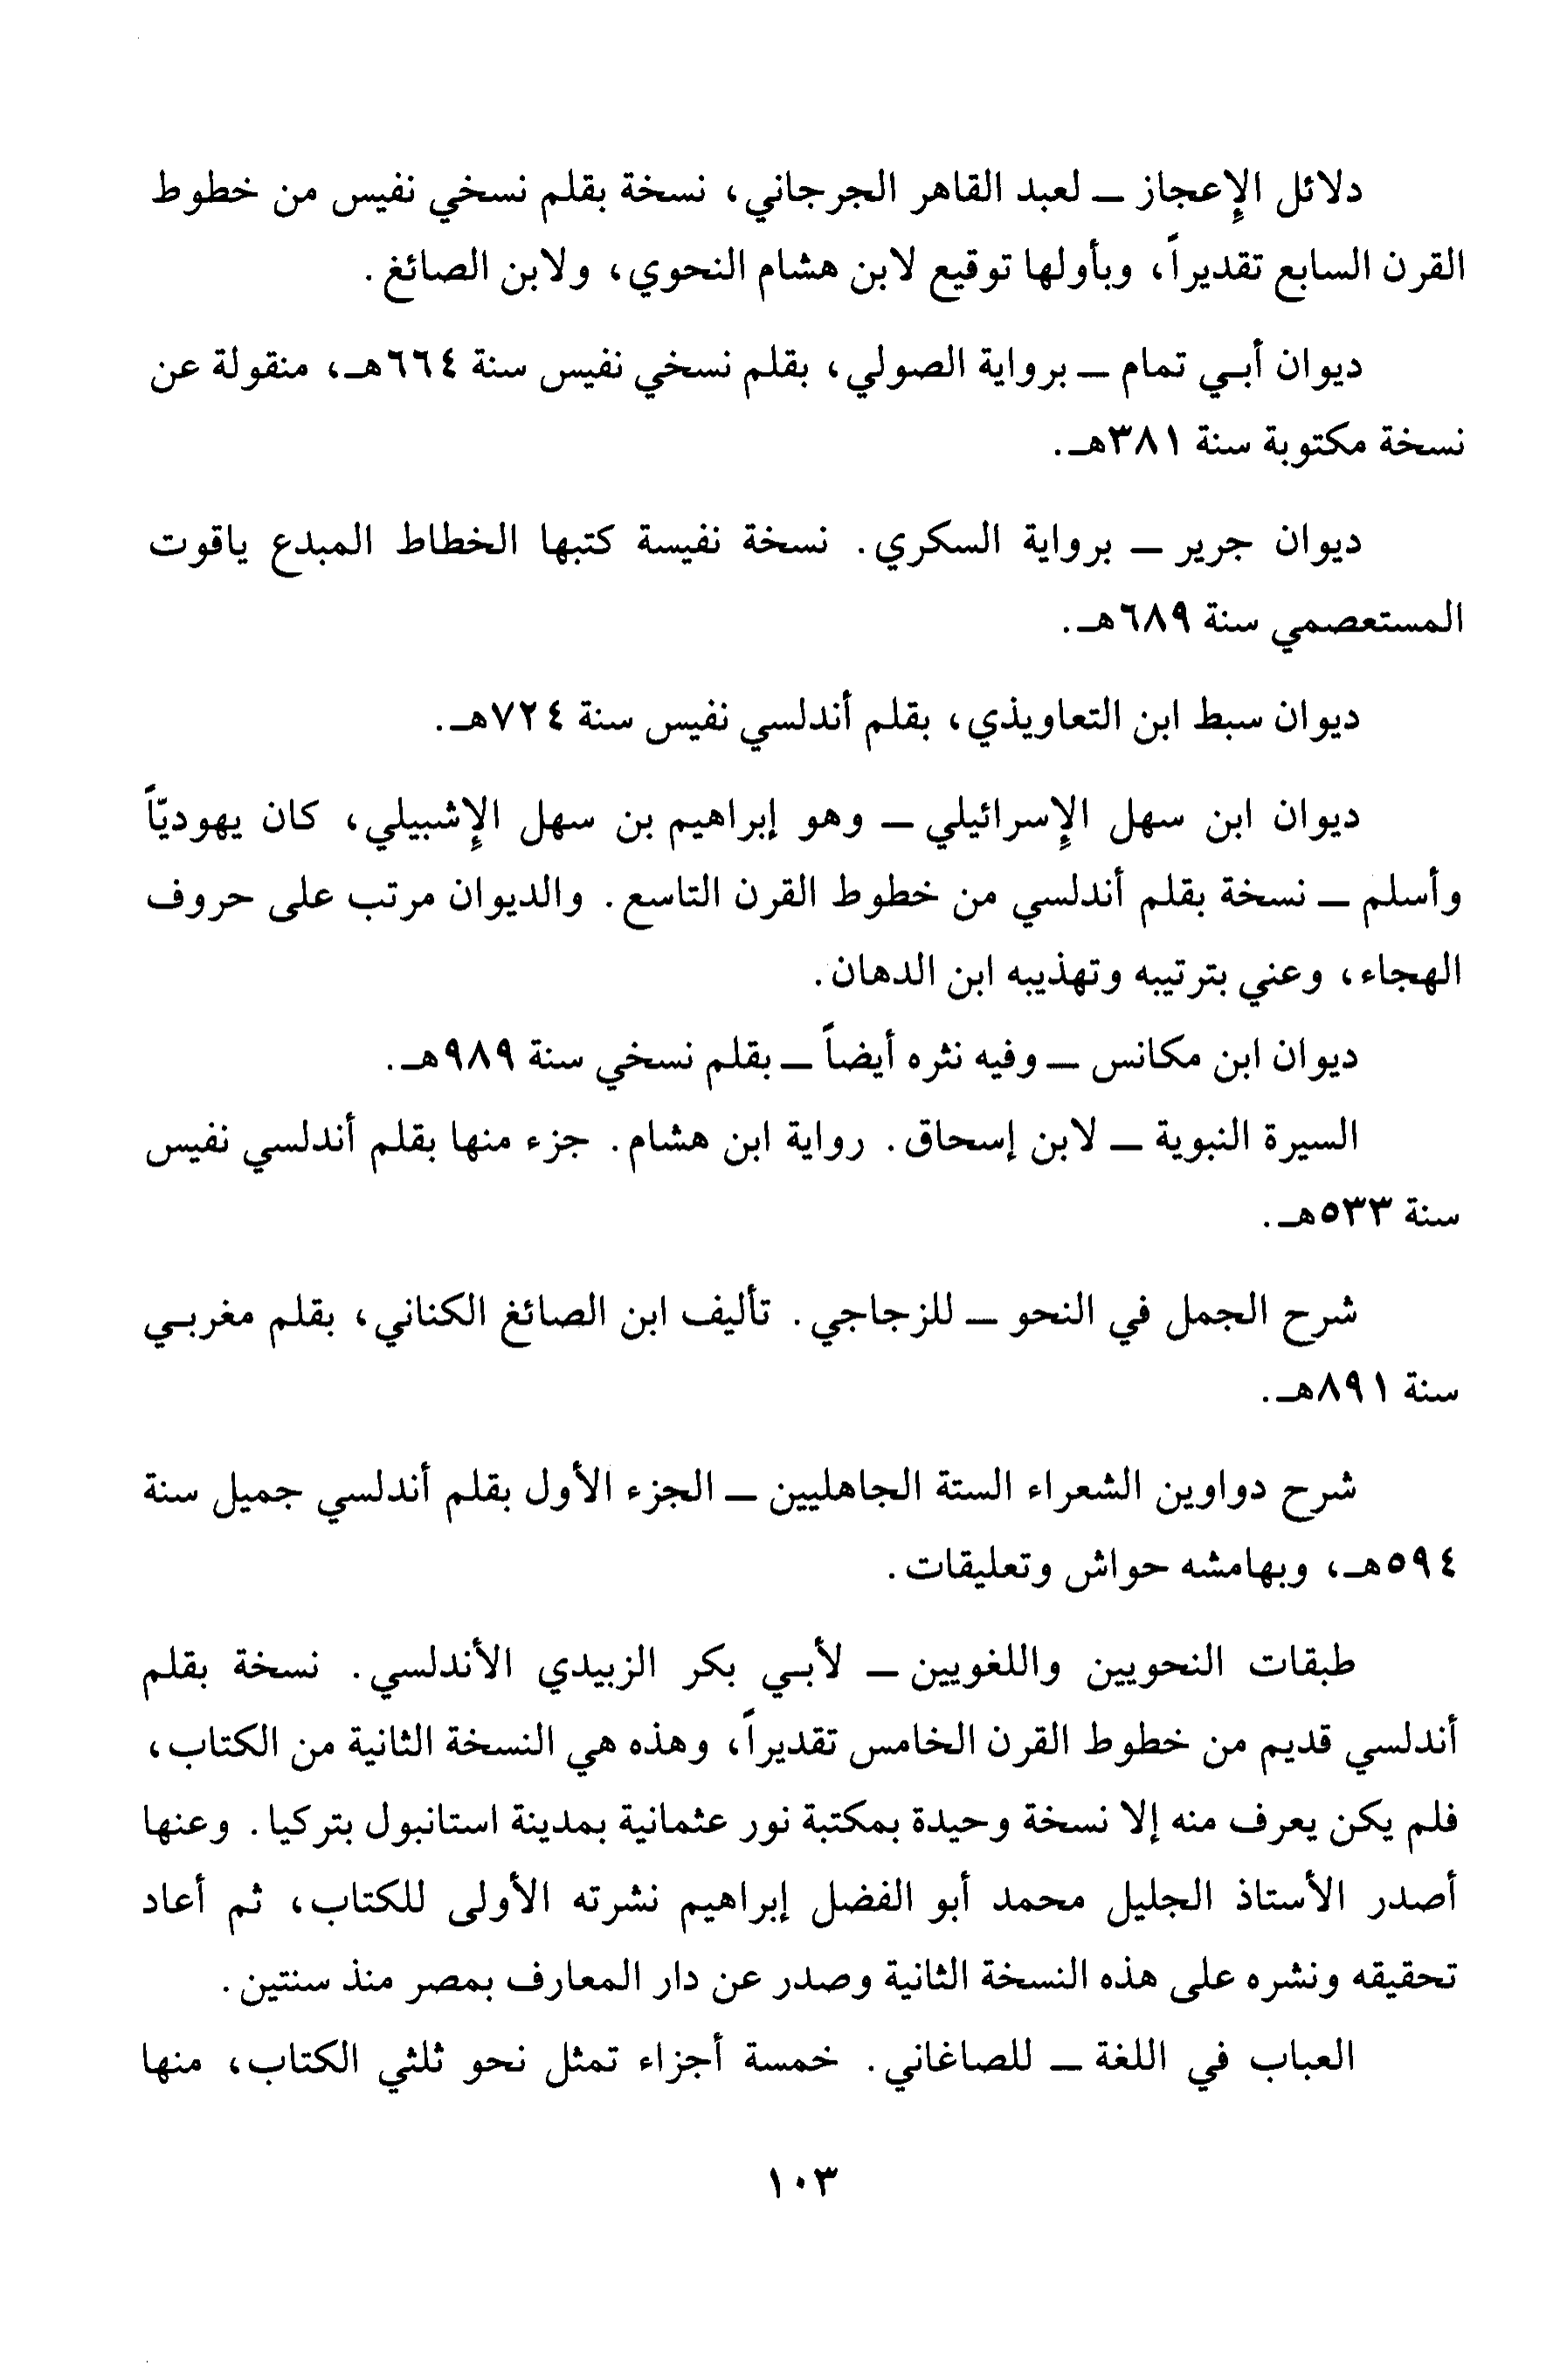 دلائل الإعجاز ــ لعبد القاهر الجرجاني، نسخة بقلم نسخي نفيس من خطوط
القرن السابع تقديراً، وبأولها توقيع لابن هشام النحوي، ولابن الصائغ.
ديوان أبي تمام ــ برواية الصولي، بقلم نسخي نفيس سنة ٦٦٤هـ، منقولة عن
نسخة مكتوبة سنة ٣٨١هـ.
ديوان جرير ــ برواية السكري. نسخة نفيسة كتبها الخطاط المبدع ياقوت
المستعصمي سنة ٦٨٩هـ.
ديوان سبط ابن التعاويذي، بقلم أندلسي نفيس سنة ٧٢٤هـ.
ديوان ابن سهل الإسرائيلي ــ وهو إبراهيم بن سهل الإشبيلي، كان يهوديّاً
وأسلم ــ نسخة بقلم أندلسي من خطوط القرن التاسع. والديوان مرتب على حروف
الهجاء، وعني بترتيبه وتهذيبه ابن الدهان.
ديوان ابن مكانس ــ وفيه نثره أيضاً ــ بقلم نسخي سنة ٩٨٩هـ.
السيرة النبوية ــ لابن إسحاق. رواية ابن هشام. جزء منها بقلم أندلسي نفيس
سنة ٥٣٣هـ.
شرح الجمل في النحو ــ للزجاجي. تأليف ابن الصائغ الكناني، بقلم مغربي
سنة ٨٩١هـ.
شرح دواوين الشعراء الستة الجاهليين ــ الجزء الأول بقلم أندلسي جميل سنة
٥٩٤هـ، وبهامشه حواش وتعليقات.
طبقات النحويين واللغويين ــ لأبي بكر الزبيدي الأندلسي. نسخة بقلم
أندلسي قديم من خطوط القرن الخامس تقديراً، وهذه هي النسخة الثانية من الكتاب،
فلم يكن يعرف منه إلا نسخة وحيدة بمكتبة نور عثمانية بمدينة استانبول بتركيا. وعنها
أصدر الأستاذ الجليل محمد أبو الفضل إبراهيم نشرته الأولى للكتاب، ثم أعاد
تحقيقه ونشره على هذه النسخة الثانية وصدر عن دار المعارف بمصر منذ سنتين.
العباب في اللغة ــ للصاغاني. خمسة أجزاء تمثل نحو ثلثي الكتاب، منها
١٠٣